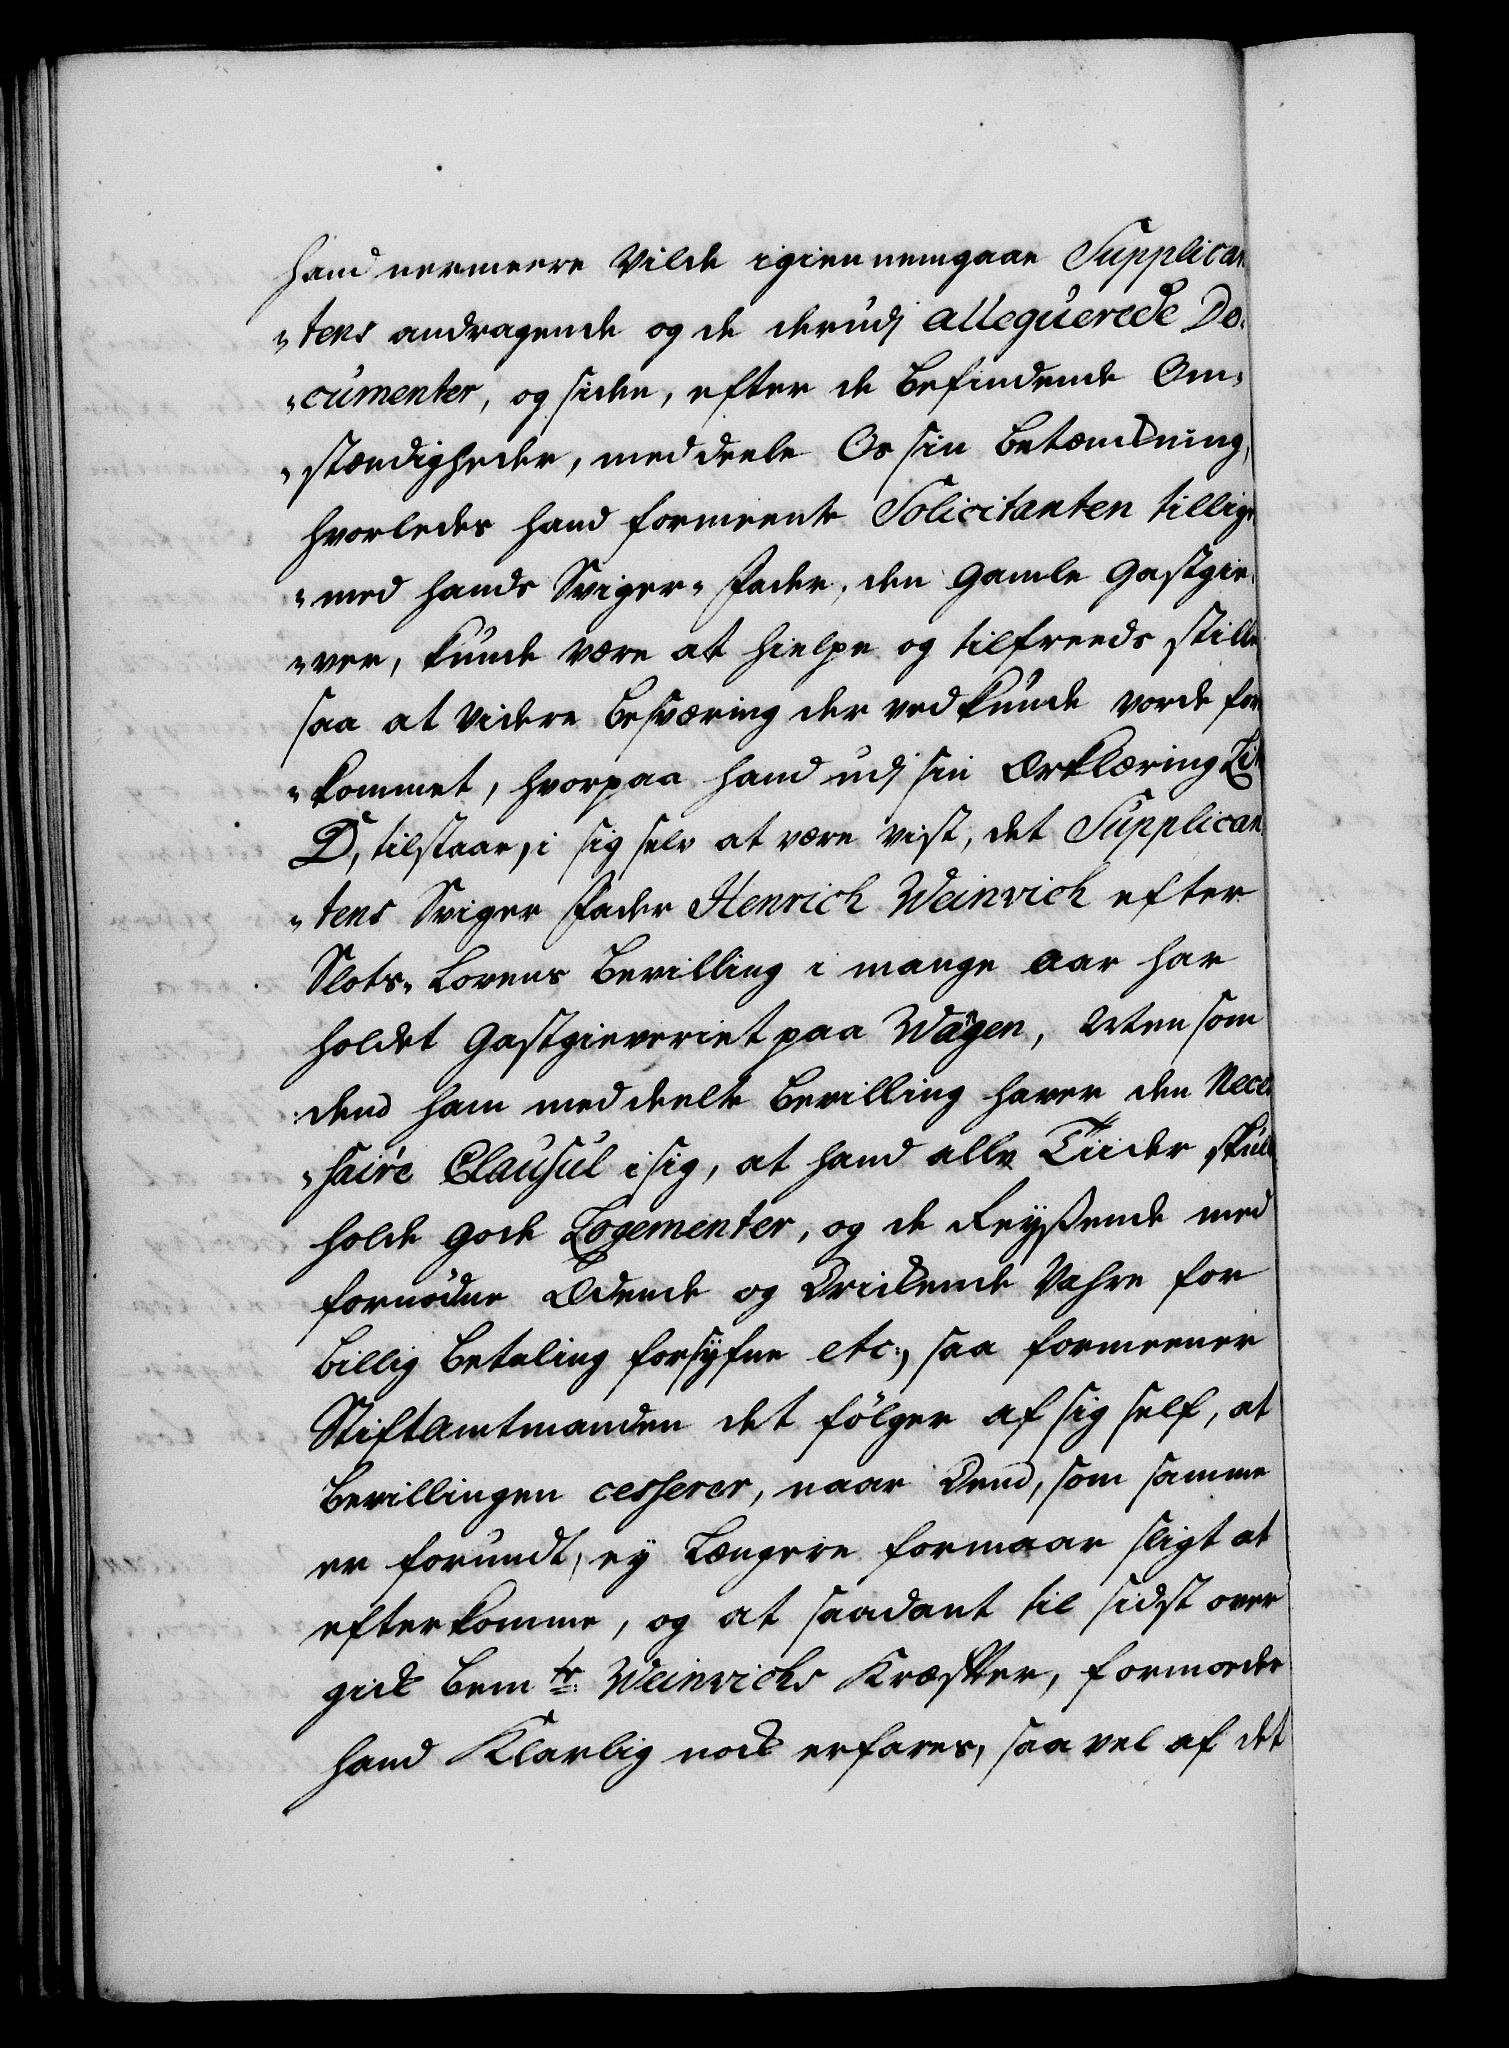 hand nermeere vilde igiennemgaae Supplican
"tens andragende og de derudj alleguerede Do„
"cumenter, og siden, efter de befindende Om„
"stændigheder, meddeele Os sin betænckning,
hvorledes hand formeente Solicitanten tillige
"med hands Sviger„ Fader, den gamle gastgie„
"ver, kunde være at hielpe og tilfreeds stille
saa at videre besværing der ved kunde vorde for
"kommet, hvorpaa hand udj sin Erklæring Lit
D, tilstaar, i sig selv at være vist, det Supplican
"tens Sviger Fader Henrich Weinrich efter
Slots„ Lovens bevilling i mange Aar har
holdet gastgieveriet paa Wågen, Men som
dend ham meddeelte bevilling haver den Neces
"saire Clausul i sig, at hand alle Tiider skulde
holde gode Logementer, og de Reyßende med
fornødne Edende og Drickende Vahre for
billig betaling forsyne etc:, saa formeener
Stiftamtmanden det følger af sig self, at
bevillingen cesserer, naar Dend, som samme
er forundt, ey Længere formaar sligt at
efterkomme, og at saadant til sidst over
gick bemte: Weinrichs Kræfter, formoder
hand Klarlig nock erfares, saa vel af det